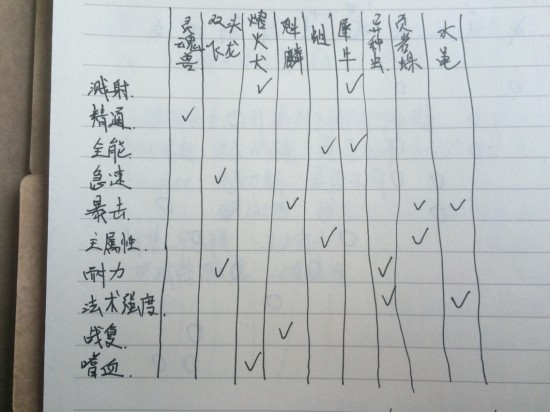 灵魂兽 双头飞龙 熔火犬 魁麟 蛆 犀牛 异种虫 页岩蛛 水黾
溅射 ✓ ✓
精通 ✓
全能 ✓ ✓
急速 ✓
暴击 ✓ ✓ ✓
主属性 ✓ ✓
耐力 ✓ ✓
法术强度 ✓ ✓
战复 ✓
嗜血 ✓